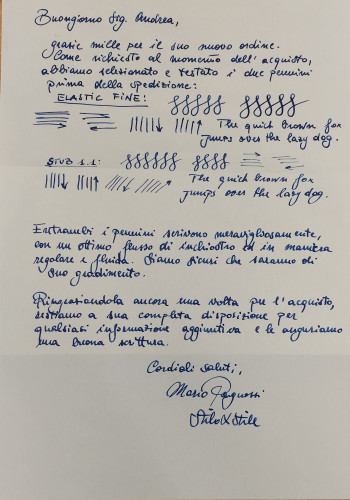 Buongiorno Sig. Andrea,
grazie mille per il suo nuovo ordine.
Come richiesto al momento dell'acquisto,
abbiamo selezionato e testato i due pennini
prima della spedizione:
ELASTIC FINE:
The quick brown fox
jumps over the lazy dog.
STUB 1.1:
The quick brown fox
jumps over the lazy dog.
Entrambi i pennini scrivono meravigliosamente,
con un ottimo flusso di inchiostro ed in maniera
regolare e fluida. Siamo sicuri che saranno di
suo gradimento.
Ringraziandola ancora una volta per l'acquisto,
restiamo a sua completa disposizione per
qualsiasi informazione aggiuntiva e le auguriamo
una buona scrittura.
Cordiali saluti,
Mario
Stilo&Stile